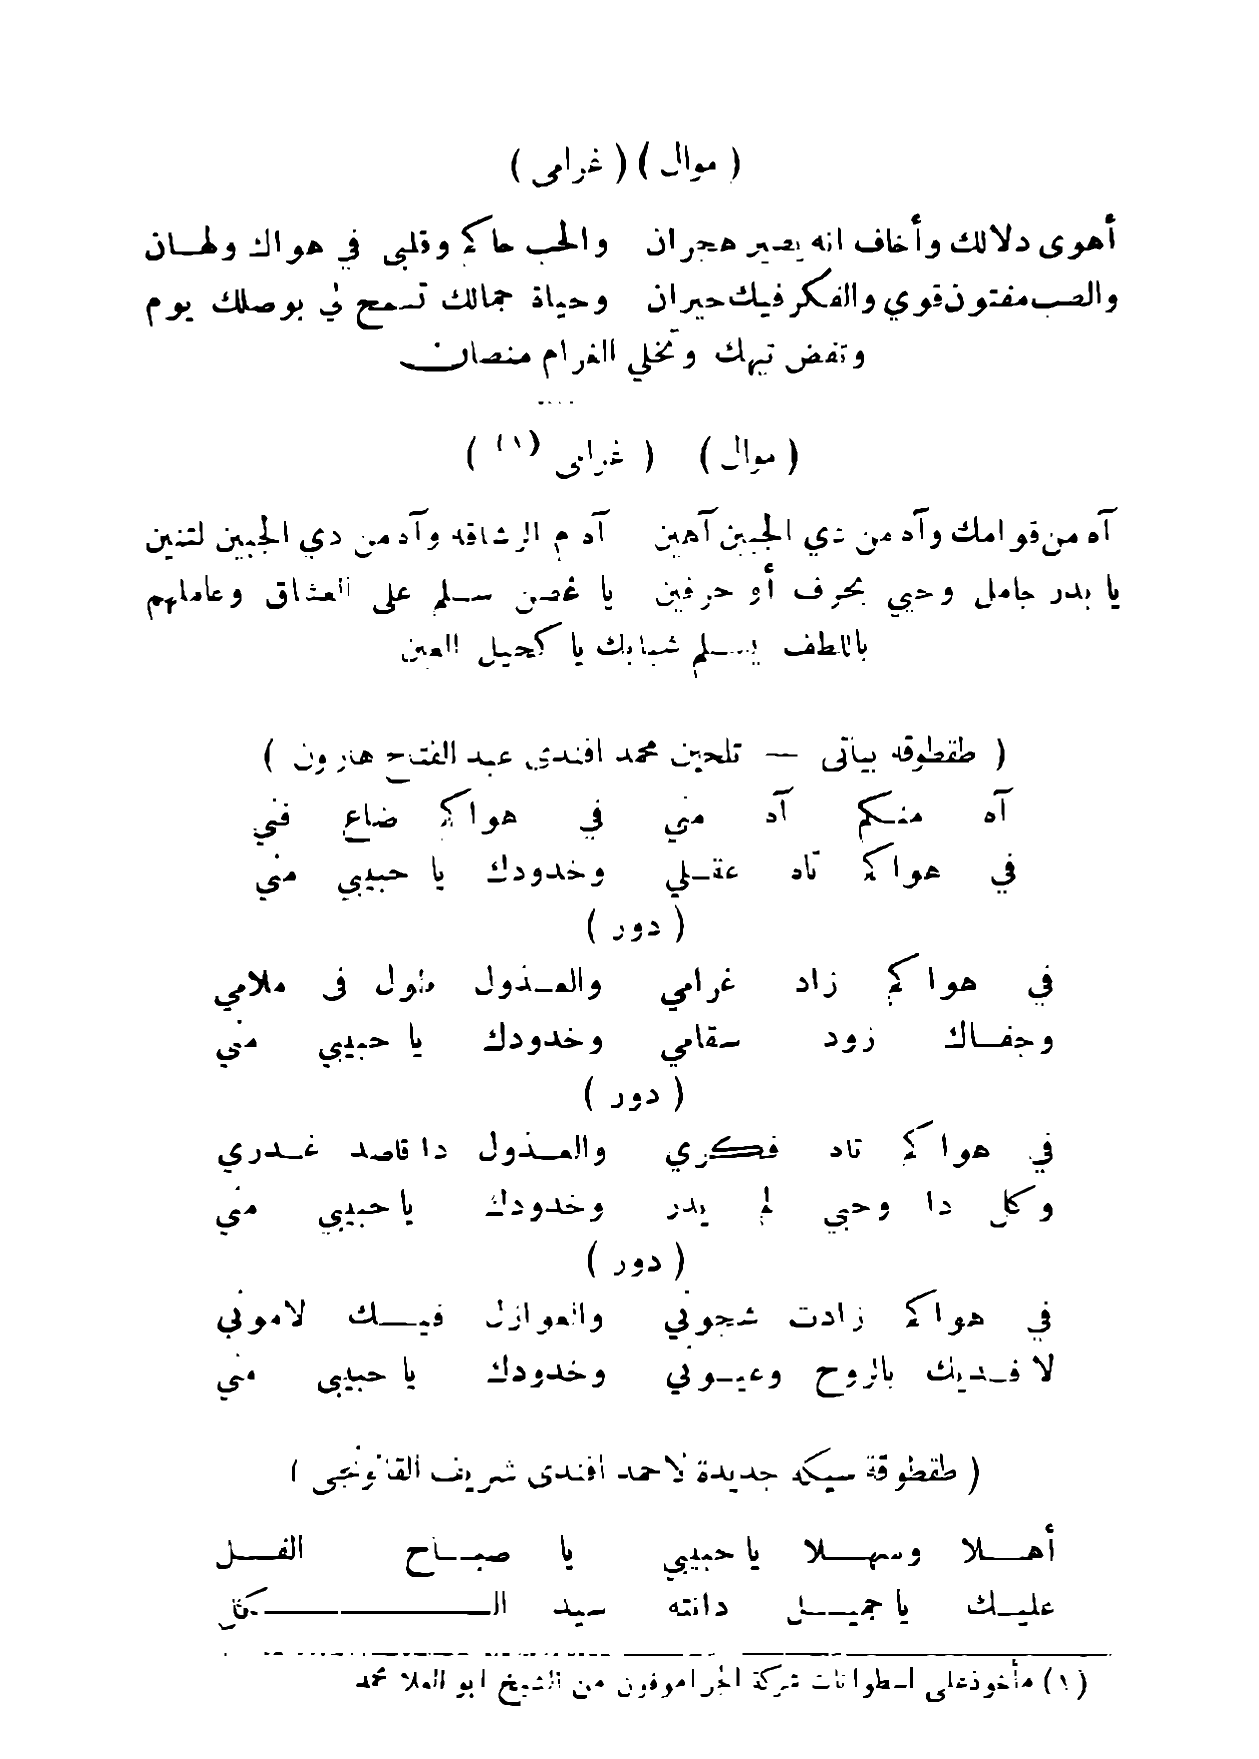 ( موال ) ( غرامى )
أهوى دلالك وأخاف انه يصير هجران والحب حاكم وقلبى في هواك ولهان
والصب مفتون قوي والفكر فيك حيران وحياة جمالك تسمح لي بوصلك يوم
وتفض تيهك وتخلي الغرام منصان
( موال ) ( غرامى (١) )
آه من قوامك وآه من دي الجبين آهين آه م الرشاقه وآه من دي الجبين لتنين
يا بدر جامل وحيي بحرف أو حرفين يا غصن سلم على العشاق وعاملهم
باللطف يسلم شبابك يا كحيل العين
( طقطوقه بياتى — تلحين محمد افندي عبد الفتاح هارون )
آه منكم آه مني في هواكم ضاع فني
في هواكم تاه عقلي وخدودك يا حبيبي مني
( دور )
في هواكم زاد غرامي والعذول طول فى ملامي
وجفاك زود سقامي وخدودك يا حبيبي مني
( دور )
في هواكم تاه فكري والعذول دا قاصد غدري
وكل دا وحبي لم يدر وخدودك يا حبيبي مني
( دور )
في هواكم زادت شجوني والعوازل فيك لاموني
لا فديك بالروح وعيوني وخدودك يا حبيبى مني
( طقطوقة سيكه جديدة لاحمد افندى شريف القانونجى )
أهلا وسهلا يا حبيبي يا صباح الفل
عليك يا جميل دانته سيد الكل
(١) مأخوذ على اسطوانات شركة الجراموفون من الشيخ ابو العلا محمد